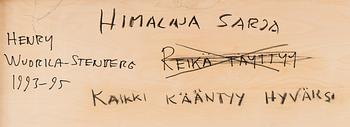 HIMALAJA SARJA
HENRY
WUORILA-STENBERG
1993-95
REIKÄ TÄYTTYY
KAIKKI KÄÄNTYY HYVÄKSI